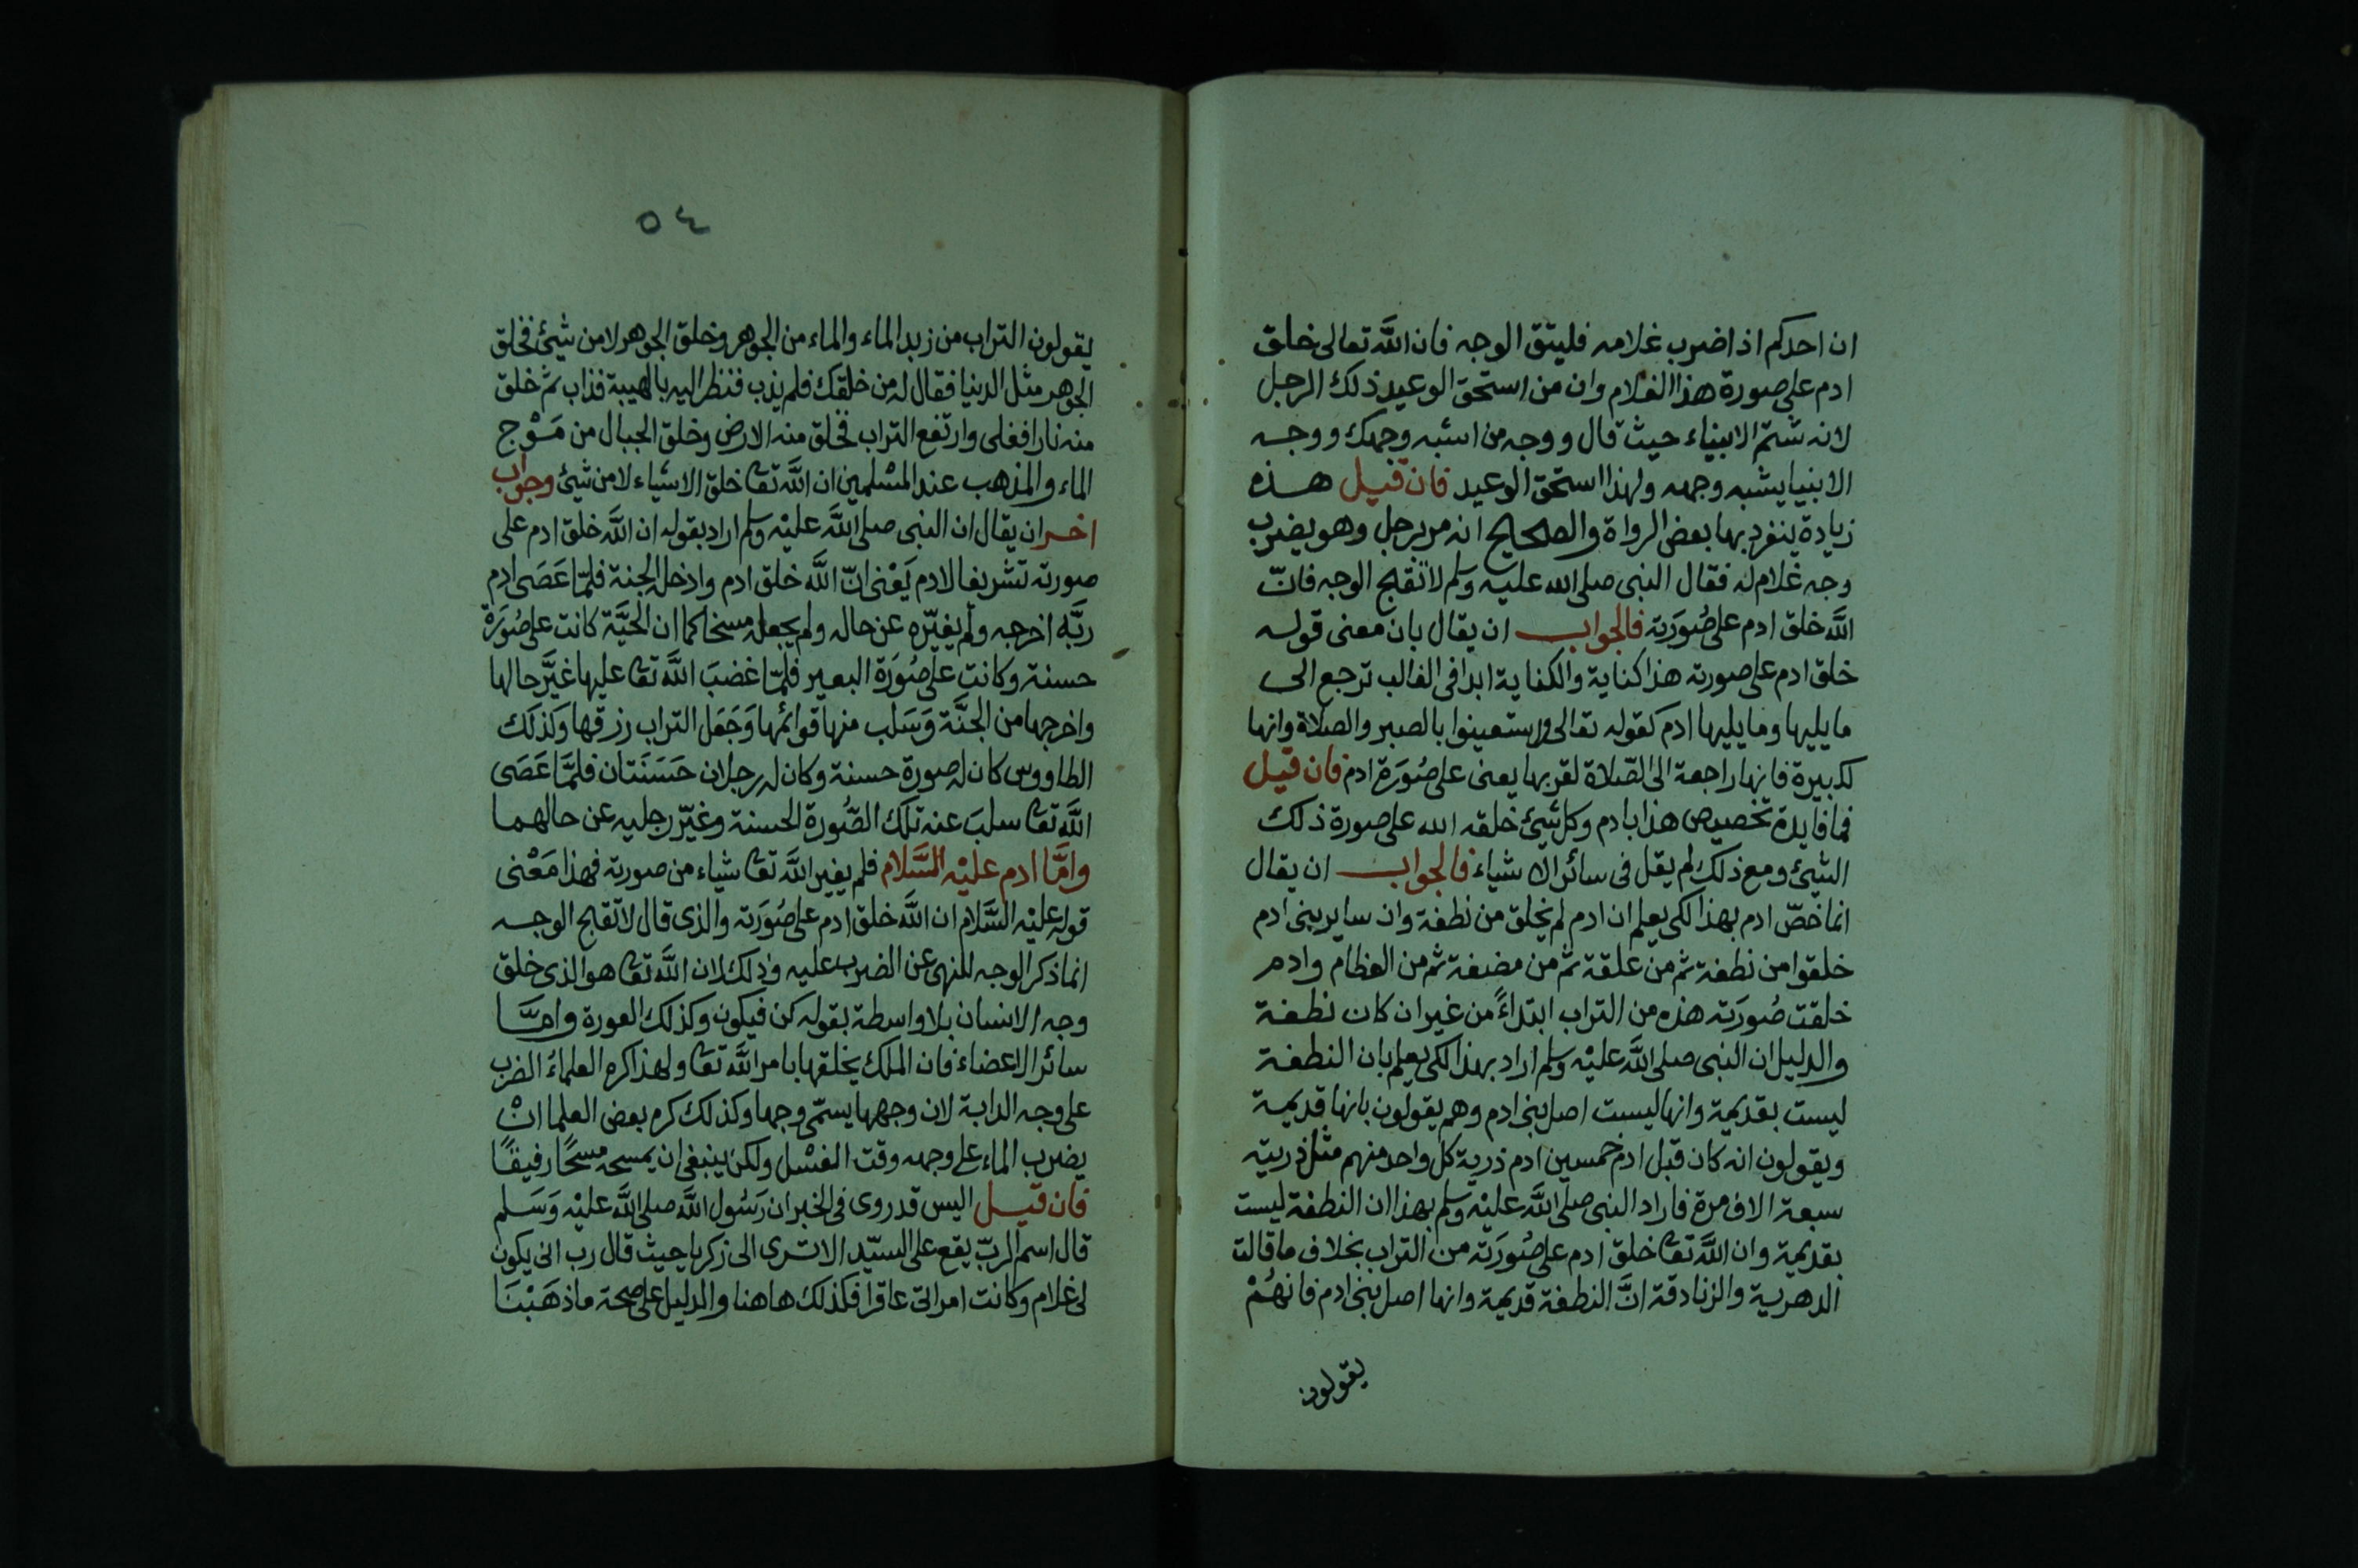 ان احدكم اذا ضرب غلامه فليتق الوجه فان الله تعالى خلق
ادم على صورة هذا الغلام وان من استحق الوعيد ذلك الرجل
لانه شتم الانبياء حيث قال ووجه من اشبه وجهك ووجه
الانبيا يشبه وجهه ولهذا استحق الوعيد فان قيل هذه
زيادة ينفرد بها بعض الرواة والصحيح انه مر برجل وهو يضرب
وجه غلام له فقال النبى صلى الله عليه وسلم لا تقبح الوجه فانّ
الله خلق ادم على صُورَته فالجواب ان يقال بان معنى قوله
خلق ادم على صورته هذا كناية والكناية ابدا فى الغالب ترجع الى
ما يليها وما يليها ادم كقوله تعالى واستعينوا بالصبر والصلاة وانها
لكبيرة فانها راجعة الى الصّلاة لقربها يعنى على صُورَة ادم فان قيل
فما فايدة تخصيص هذا بادم وكل شيئ خلقه الله على صورة ذلك
الشيئ ومع ذلك لم يقل فى سائر الاشياء فالجواب ان يقال
انما خصّ ادم بهذا لكى يعلم ان ادم لم يخلق من نطفة وان ساير بنى ادم
خلقوا من نطفة ثم من علقة ثم من مضغة ثم من العظام وادم
خلقت صُورَته هذه من التراب ابتداءً من غير ان كان نطفة
والدليل ان النبى صلى الله عليْه وسلم اراد بهذا لكى يعلم بان النطفة
ليست بقديمة وانها ليست اصل بنى ادم وهم يقولون بانها قديمة
ويقولون انه كان قبل ادم خمسين ادم ذرية كل واحد منهم مثل ذريته
سبعة الاف مرة فاراد النبى صلى الله عليْه وسلم بهذا ان النطفة ليست
بقديمة وان الله تعا خلق ادم على صُورَته من التراب بخلاف ما قالت
الدهرية والزنادقة انَّ النطفة قديمة وانها اصل بنى ادم فانهُمْ
يقولون
٥٤
يقولون التراب من زبد الماء والماء من الجوهر وخلق الجوهر لا من شيئ فخلق
الجوهر مثل الدنيا فقال له من خلقك فلم يذب فنظر اليه بالهيبة فذاب ثم خلق
منه نارا فغلى وارتفع التراب فخلق منه الارض وخلق الجبال من مَوْج
الماء والمذهب عند المسْلمين ان الله تعا خلق الاشياء لا من شيئ وجواب
اخر ان يقال ان النبى صلى الله عليْه وسلم اراد بقوله ان الله خلق ادم على
صورته تشريفا لادم يَعْنى انّ الله خلق ادم وادخله الجنة فلمّا عَصَى ادم
ربَّه اخرجه ولم يغيّره عن حاله ولم يجعله مسخا كما ان الحيَّة كانت على صُورَة
حسنة وكانت على صُورَة البعير فلمّا غضبَ الله تعا عليها غيَّر حالها
واخرجها من الجنَّة وَسَلب منها قوائمها وَجَعَل التراب رزقها وَكذلَك
الطاووس كان له صورة حسنة وكان له رجلان حَسَنَتان فلمَّا عَصَى
الله تعا سلبَ عنه تلك الصُّورة الحسنة وغيّر رجليه عن حالهما
وامَّا ادم عليْه السَّلام فلم يغير الله تعا شياء من صورته فهذا مَعْنى
قوله عليْه السَّلام ان الله خلق ادم على صُورَته والذى قال لا تقبح الوجه
انما ذكر الوجه للنهى عن الضرب عليه وذلك لان الله تعا هو الذى خلق
وجه الانسان بلا واسطة بقوله كن فيكون وكذلك العورة وامَّا
سائر الاعضاء فان الملك يخلقها بامر الله تعا ولهذا كره العلماءُ الضرب
على وجه الدابة لان وجهها يسمّى وجها وكذلك كره بعض العلما انْ
يضرب الماء على وجهه وقت الغسْل ولكن ينبغى ان يمسحه مسْحًا رفيقًا
فان قيل اليس قد روى فى الخبر ان رَسُول الله صلى الله عليْه وَسَلم
قال اسم الربّ يقع على السيّد الا ترى الى زكريا حيث قال رب انى يكون
لى غلام وكانت امراتى عاقرا فكذلك هاهنا والدليل على صحة ما ذهَبْنَا